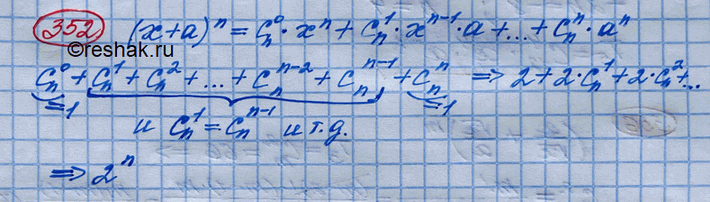 352 (x+a)ⁿ = Cₙ⁰·xⁿ + Cₙ¹·xⁿ⁻¹·a + ... + Cₙⁿ·aⁿ
©reshak.ru
Cₙ⁰ + Cₙ¹ + Cₙ² + ... + Cₙⁿ⁻² + Cₙⁿ⁻¹ + Cₙⁿ ⇒ 2 + 2·Cₙ¹ + 2·Cₙ² + ...
=1 =1
и Cₙ¹ = Cₙⁿ⁻¹ и т.д.
⇒ 2ⁿ